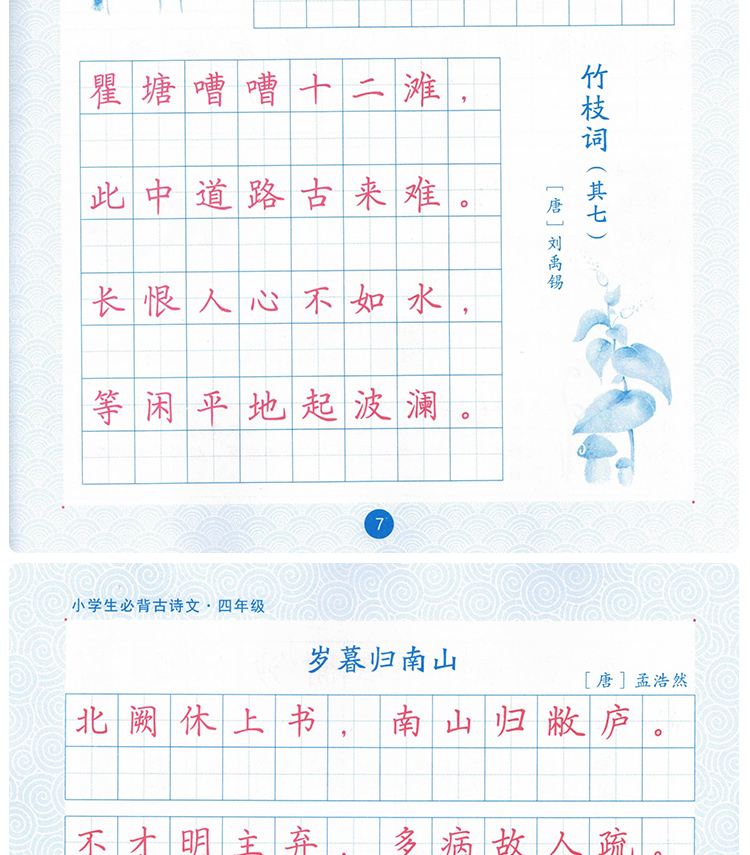 竹枝词（其七）
［唐］刘禹锡
瞿塘嘈嘈十二滩，
此中道路古来难。
长恨人心不如水，
等闲平地起波澜。
7
小学生必背古诗文·四年级
岁暮归南山
［唐］孟浩然
北阙休上书，南山归敝庐。
不才明主弃，多病故人疏。